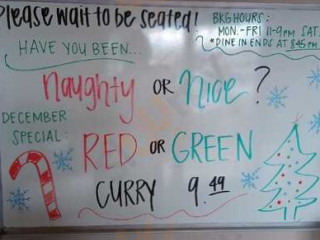 Please wait to be seated!
BKG HOURS:
MON.-FRI 11-9PM SAT.
*DINE IN ENDS AT 8:45 PM.
HAVE YOU BEEN...
Naughty OR Nice?
DECEMBER
SPECIAL:
RED OR GREEN
CURRY 9.49